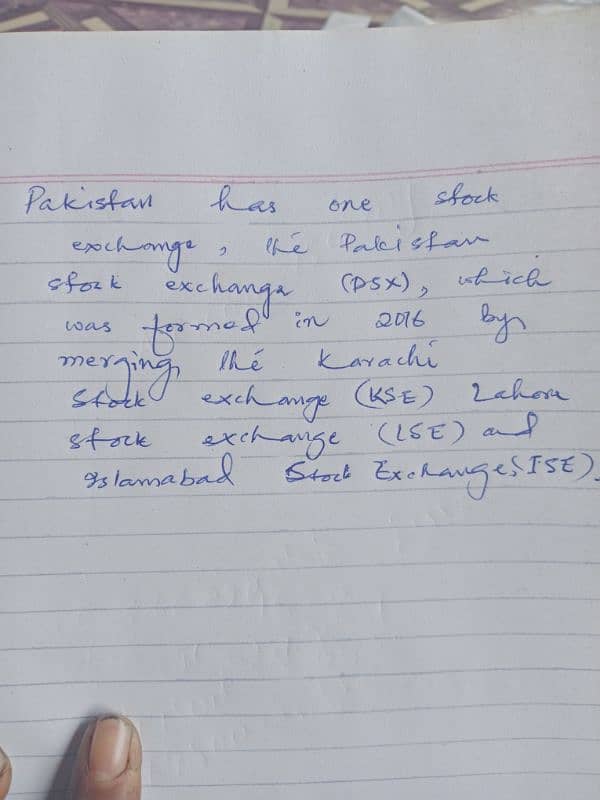 Pakistan has one stock
exchange, the Pakistan
stock exchange (PSX), which
was formed in 2016 by
merging the Karachi
Stock exchange (KSE) Lahore
stock exchange (LSE) and
Islamabad Stock Exchange(ISE).